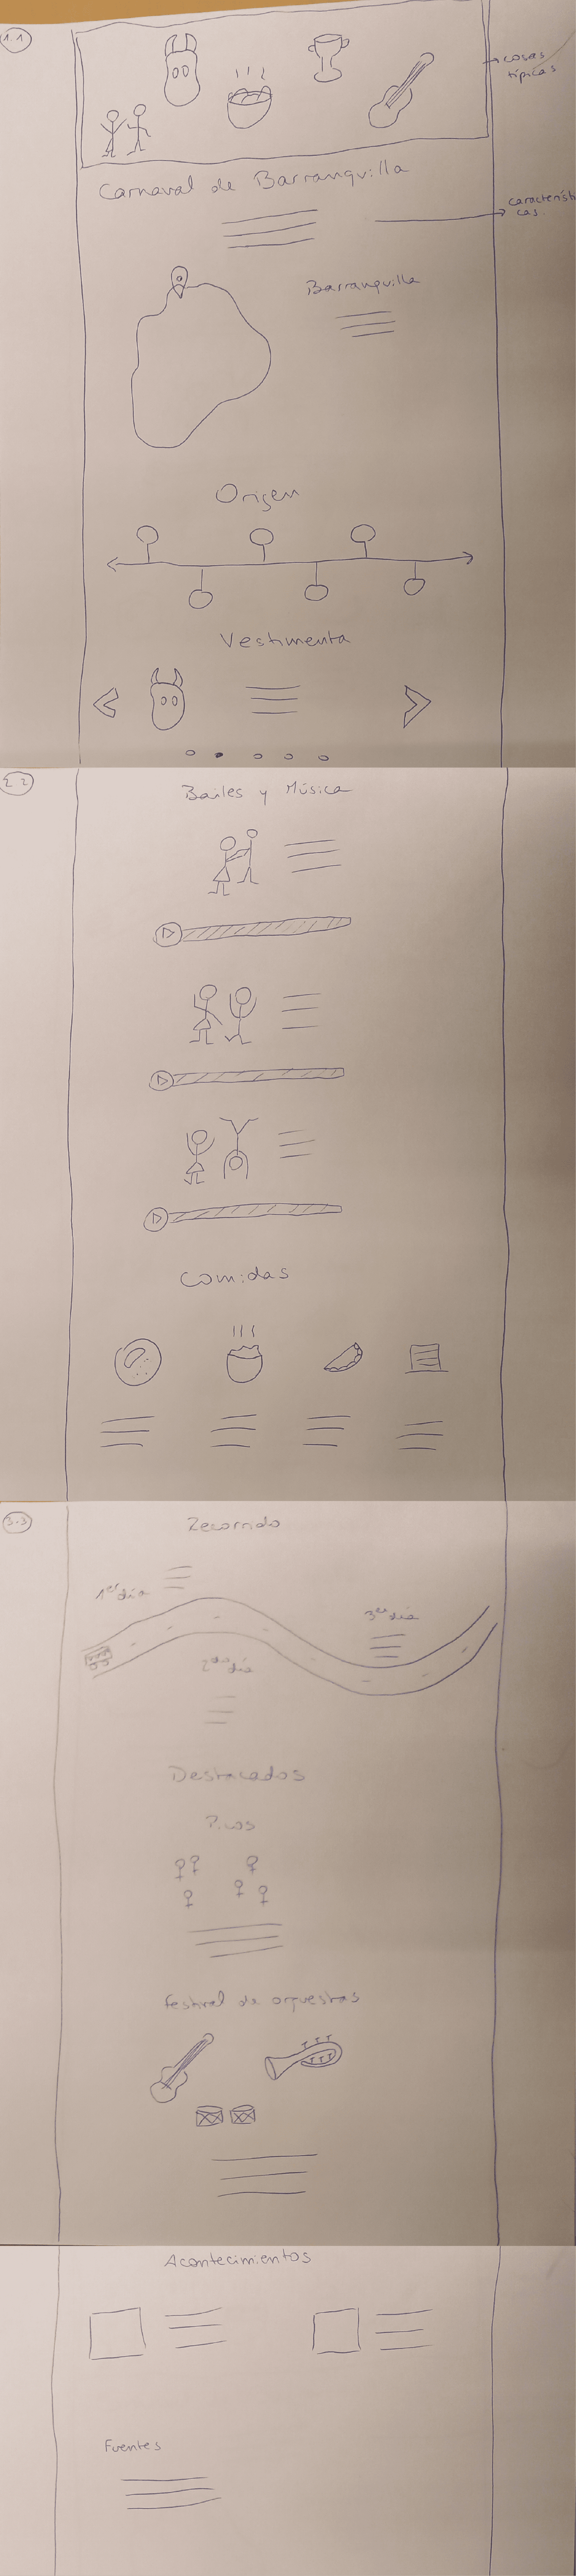 1.1
cosas
típicas
Carnaval de Barranquilla
característi
cas.
Barranquilla
Origen
Vestimenta
2.2
Bailes y Música
Comidas
3.3
Recorrido
1er día
3er día
2do día
Destacados
festival de orquestas
Acontecimientos
Fuentes